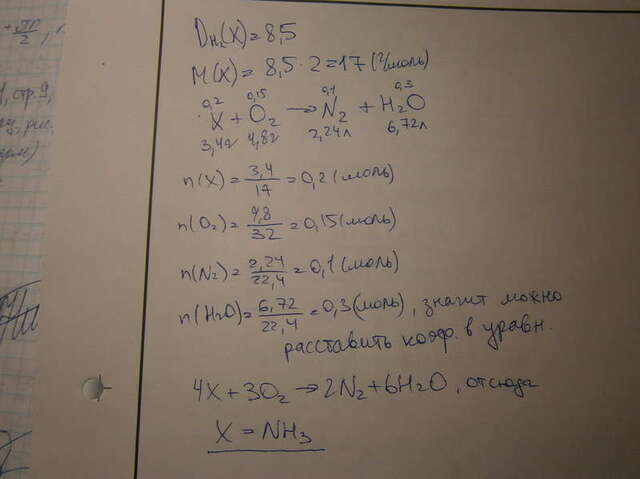 -π/2,
, стр.9,
Dн₂(X)=8,5
M(X) = 8,5 · 2 = 17 (г/моль)
0,2 0,15 0,1 0,3
X + O₂ → N₂ + H₂O
3,4г 4,8г 2,24л 6,72л
n(X) = 3,4/17 = 0,2 (моль)
n(O₂) = 4,8/32 = 0,15 (моль)
n(N₂) = 2,24/22,4 = 0,1 (моль)
n(H₂O) = 6,72/22,4 = 0,3 (моль), значит можно
расставить коэф. в уравн.
4X + 3O₂ → 2N₂ + 6H₂O, отсюда
X = NH₃